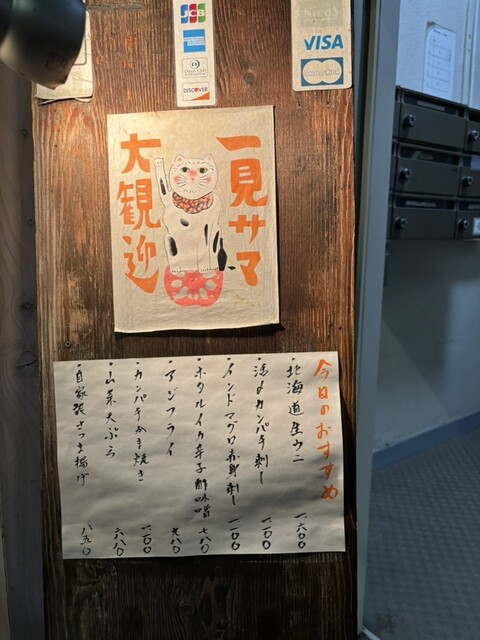 JCB
AMERICAN EXPRESS
Diners Club
DISCOVER
NICOS
VISA
MasterCard
一見サマ
大観迎
今日のおすすめ
・北海道生ウニ 一六〇〇
・活〆カンパチ刺し 一一〇〇
・インドマグロ赤身刺し 一一〇〇
・ホタルイカ辛子酢味噌 七八〇
・アジフライ 九八〇
・カンパチかま焼き 一一〇〇
・山菜天ぷら 六八〇
・自家製さつま揚げ 八五〇